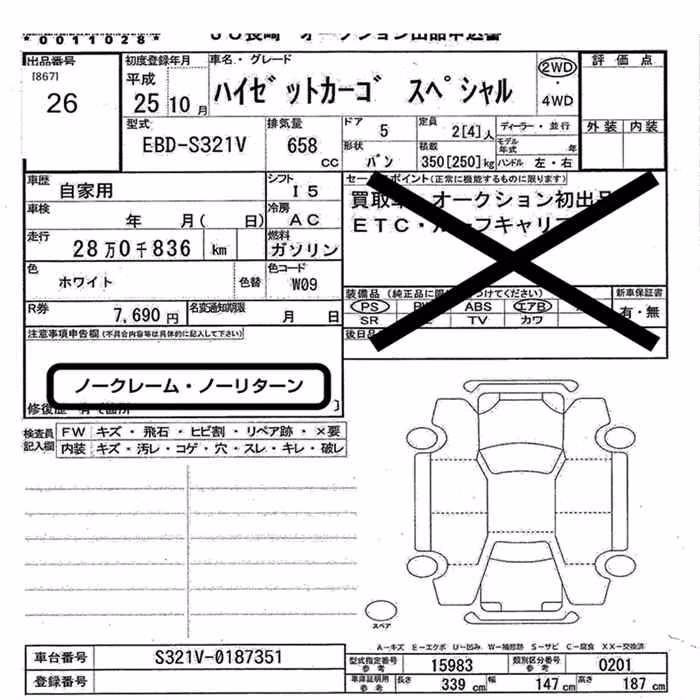 *0011028* JU長崎 オークション出品申込書
出品番号 初度登録年月 車名・グレード 2WD 評価点
[867] 平成 ハイゼットカーゴ スペシャル ・
26 25 10月 4WD
型式 排気量 ドア 5 定員 2[4]人 ディーラー・並行 外装 内装
EBD-S321V 658 cc 形状 バン 積載 350[250]kg モデル年式 年
ハンドル 左・右
車歴 自家用 シフト I5 セールスポイント(正常に機能するものに限ります)
車検 年 月( 日) 冷房 AC 買取車 オークション初出品
走行 28万0千836 km 燃料 ガソリン ETC・ルーフキャリア
色 ホワイト 色替 色コード W09
装備品 (純正品に限 つけてください) 新車保証書
R券 7,690円 名変通知期限 月 日 PS ABS エアB 有・無
SR TV カワ
注意事項申告欄(不具合内容等は具体的に記入して下さい) 後日品
ノークレーム・ノーリターン
修復歴 有で箇所 ]
検査員 FW キズ・飛石・ヒビ割・リペア跡・×要
記入欄 内装 キズ・汚レ・コゲ・穴・スレ・キレ・破レ
スペア
A-キズ E-エクボ U-凹み W-補修跡 S-サビ C-腐食 XX-交換済
車台番号 S321V-0187351 型式指定番号 参考 15983 類別区分番号 参考 0201
登録番号 車庫証明用 参考 長さ 339cm 幅 147cm 高さ 187cm